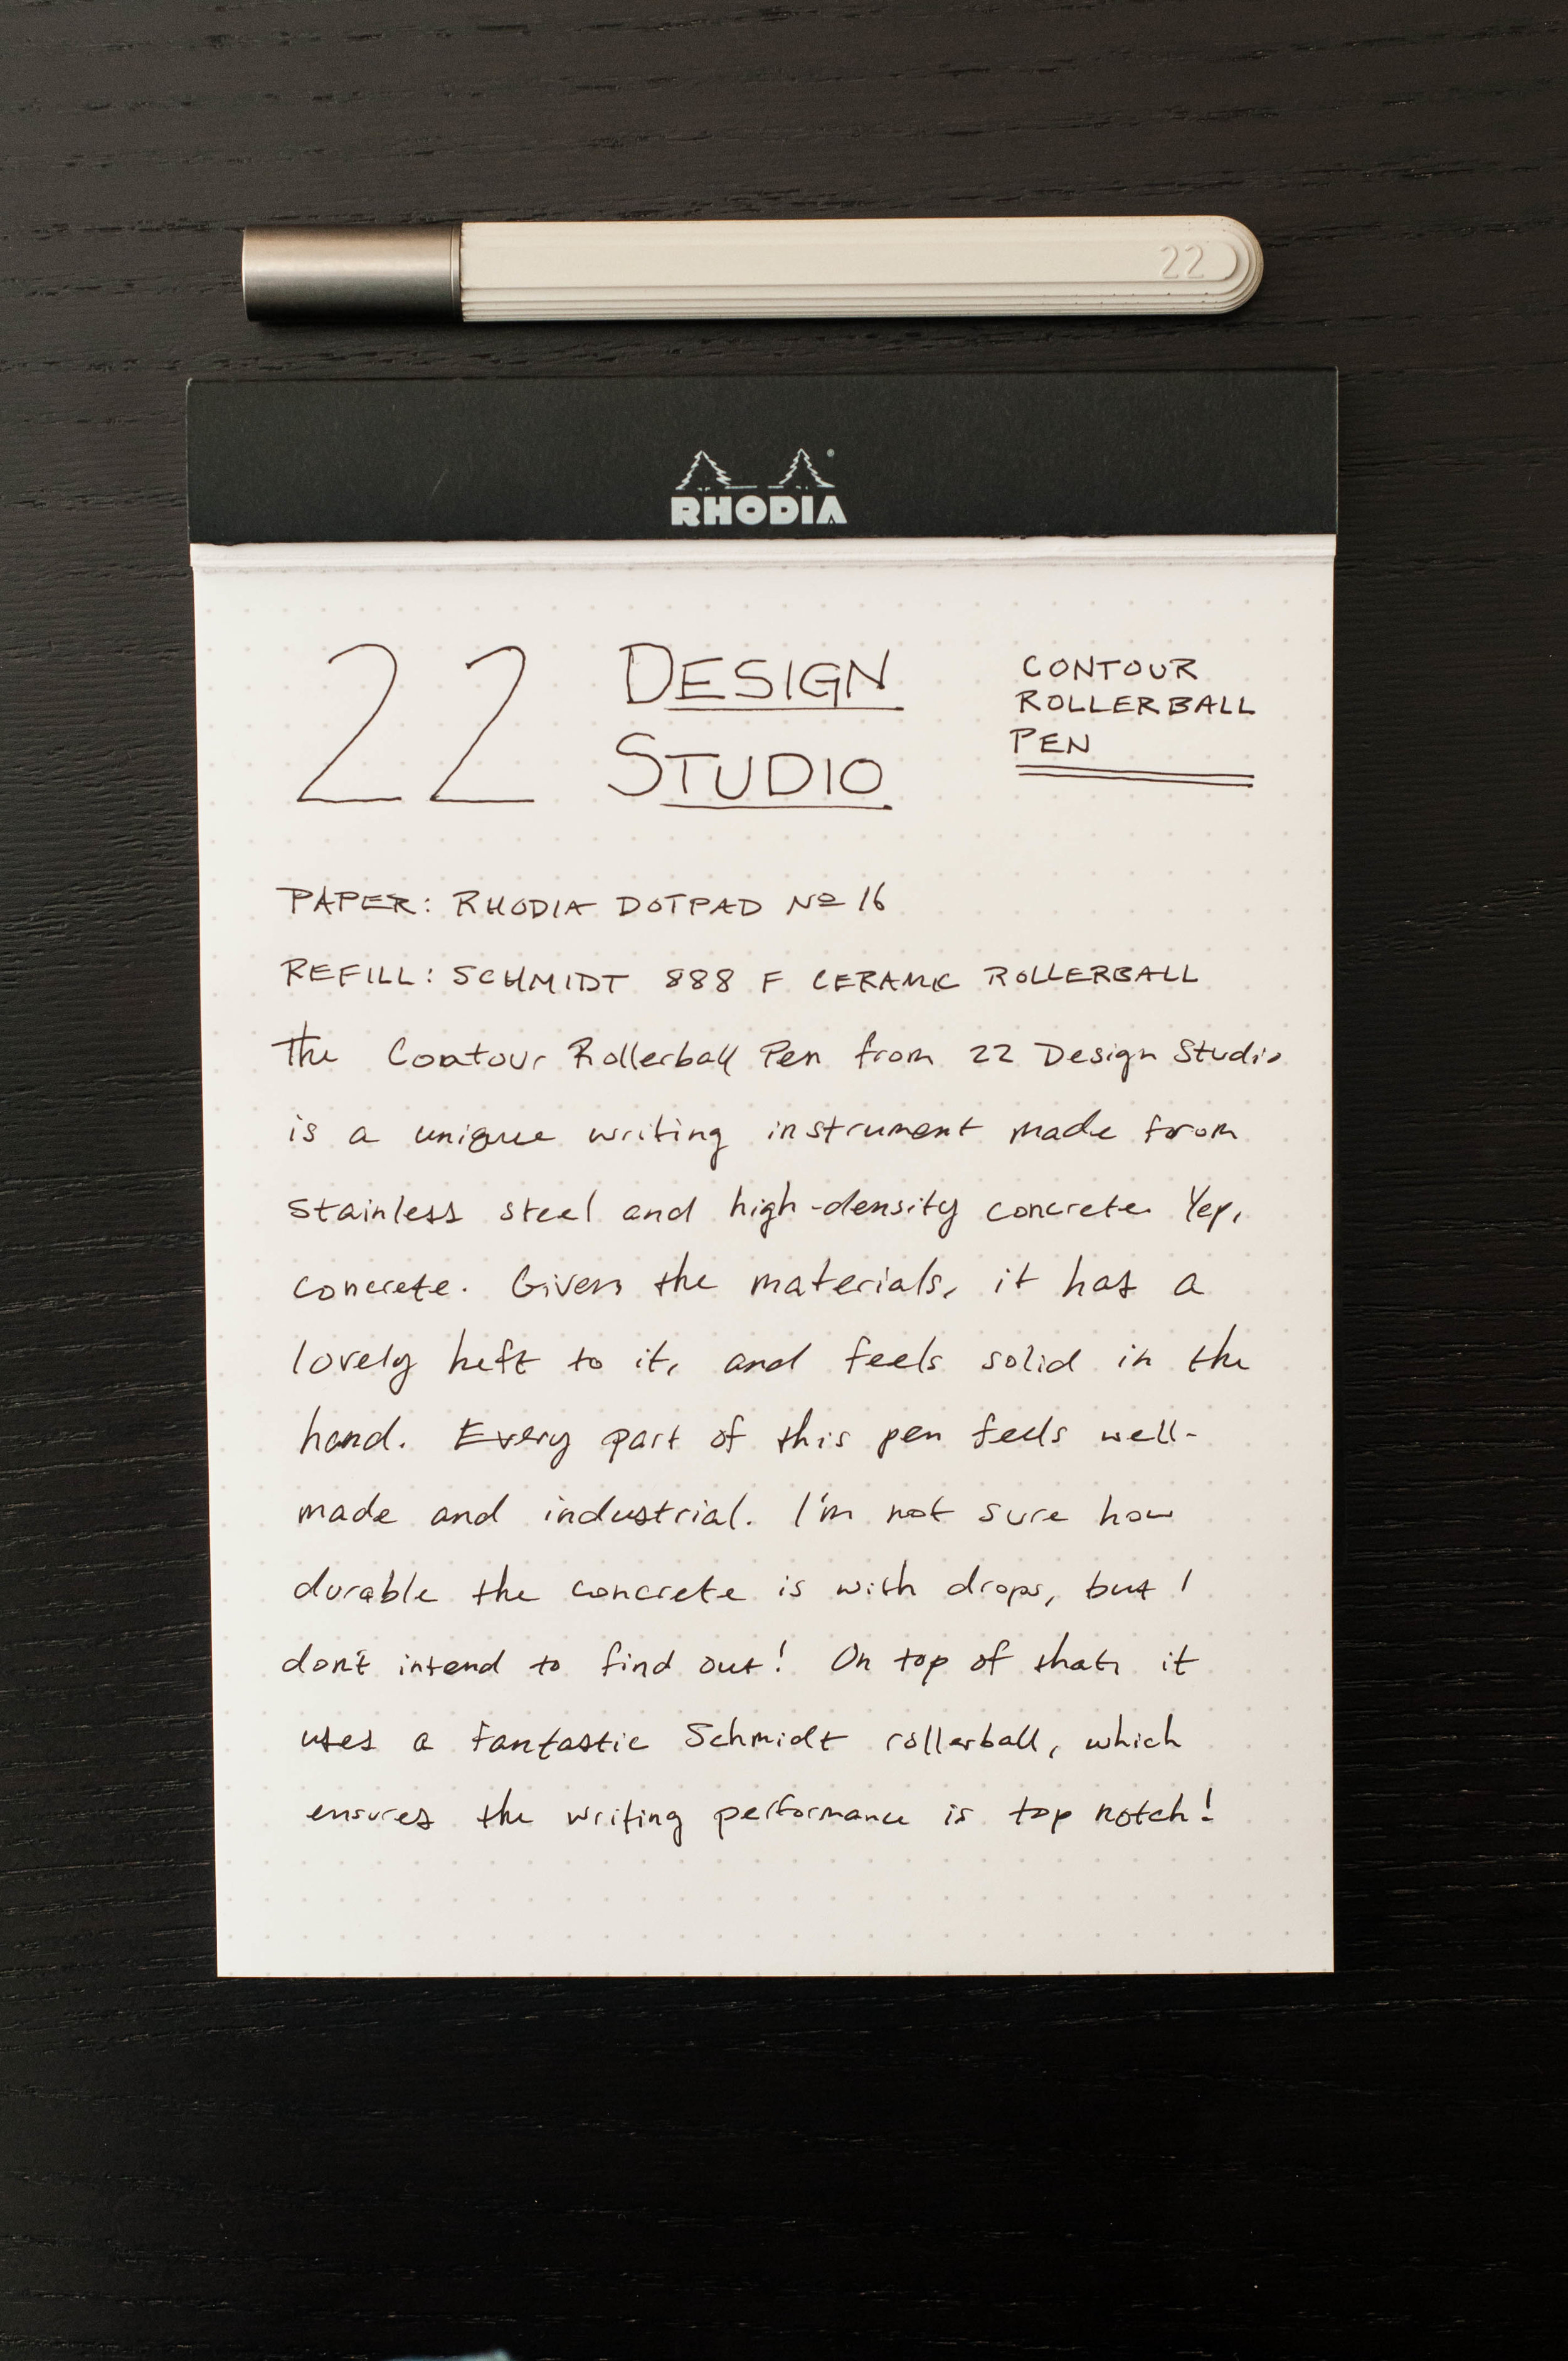 22
RHODIA
22 DESIGN STUDIO
CONTOUR
ROLLERBALL
PEN
PAPER: RHODIA DOTPAD Nº 16
REFILL: SCHMIDT 888 F CERAMIC ROLLERBALL
The Contour Rollerball Pen from 22 Design Studio
is a unique writing instrument made from
stainless steel and high-density concrete. Yep,
concrete. Given the materials, it has a
lovely heft to it, and feels solid in the
hand. Every part of this pen feels well-
made and industrial. I'm not sure how
durable the concrete is with drops, but I
don't intend to find out! On top of that, it
uses a fantastic Schmidt rollerball, which
ensures the writing performance is top notch!